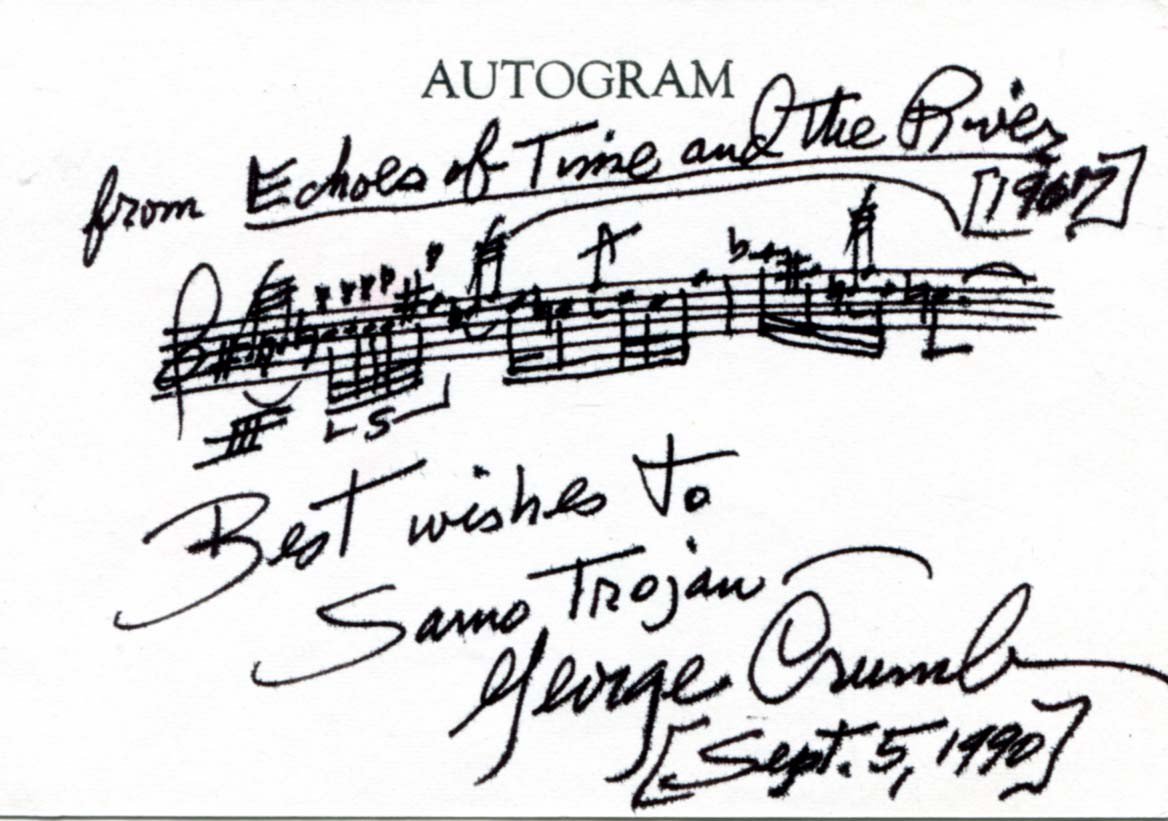 AUTOGRAM
from Echoes of Time and the River
[1967]
5
Best wishes to
Samo Trojan
George Crumb
[Sept. 5, 1990]